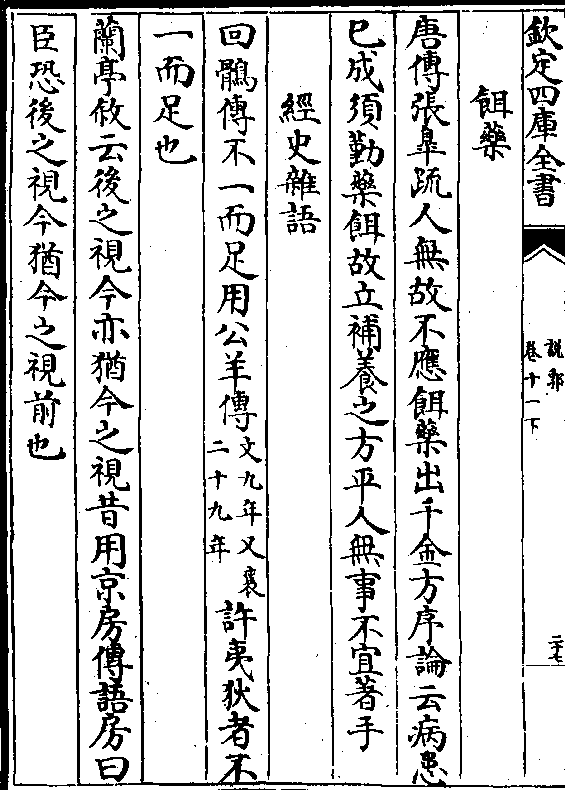 欽定四庫全書
說郛
卷十一下
二十七
餌藥
唐傳張皐疏人無故不應餌藥出千金方序論云病患
已成須勤藥餌故立補養之方平人無事不宜著手
經史雜語
回鶻傳不一而足用公羊傳文九年又襄二十九年許夷狄者不
一而足也
蘭亭敘云後之視今亦猶今之視昔用京房傳語房曰
臣恐後之視今猶今之視前也